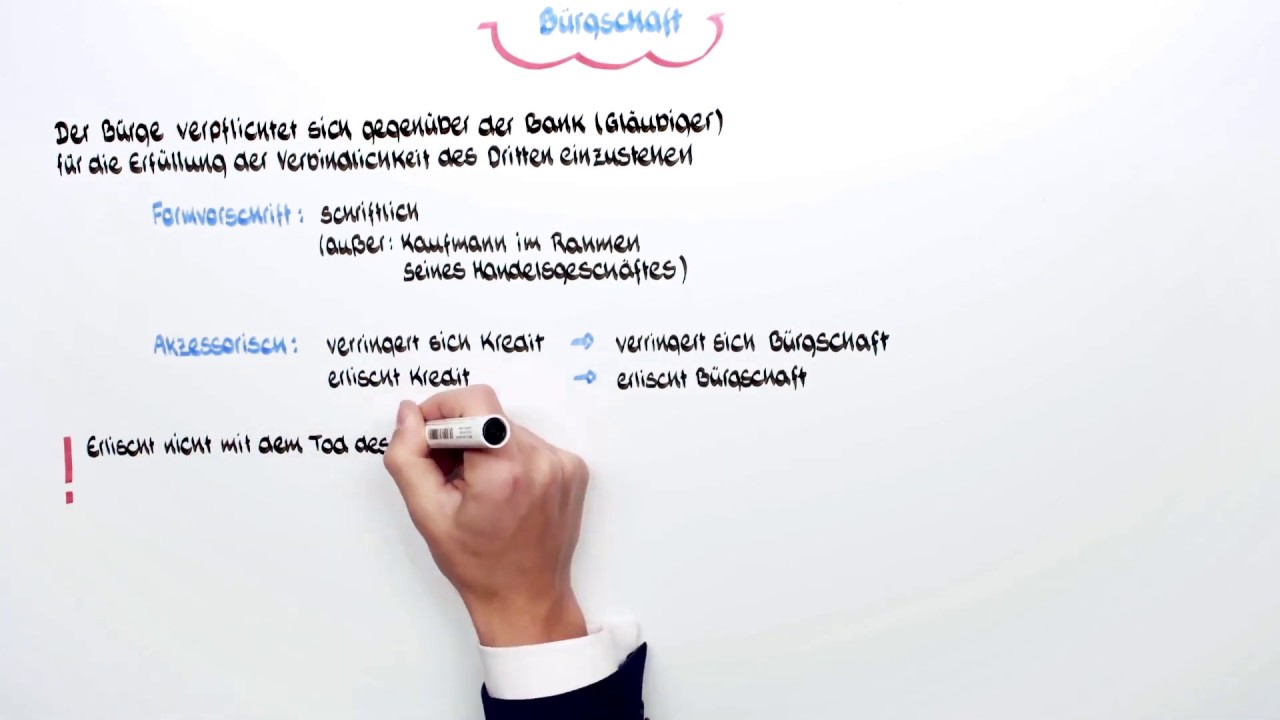 Bürgschaft
Der Bürge verpflichtet sich gegenüber der Bank (Gläubiger)
für die Erfüllung der Verbindlichkeit des Dritten einzustehen
Formvorschrift: schriftlich
(außer: Kaufmann im Rahmen
seines Handelsgeschäftes)
Akzessorisch: verringert sich Kredit → verringert sich Bürgschaft
erlischt Kredit → erlischt Bürgschaft
! Erlischt nicht mit dem Tod des